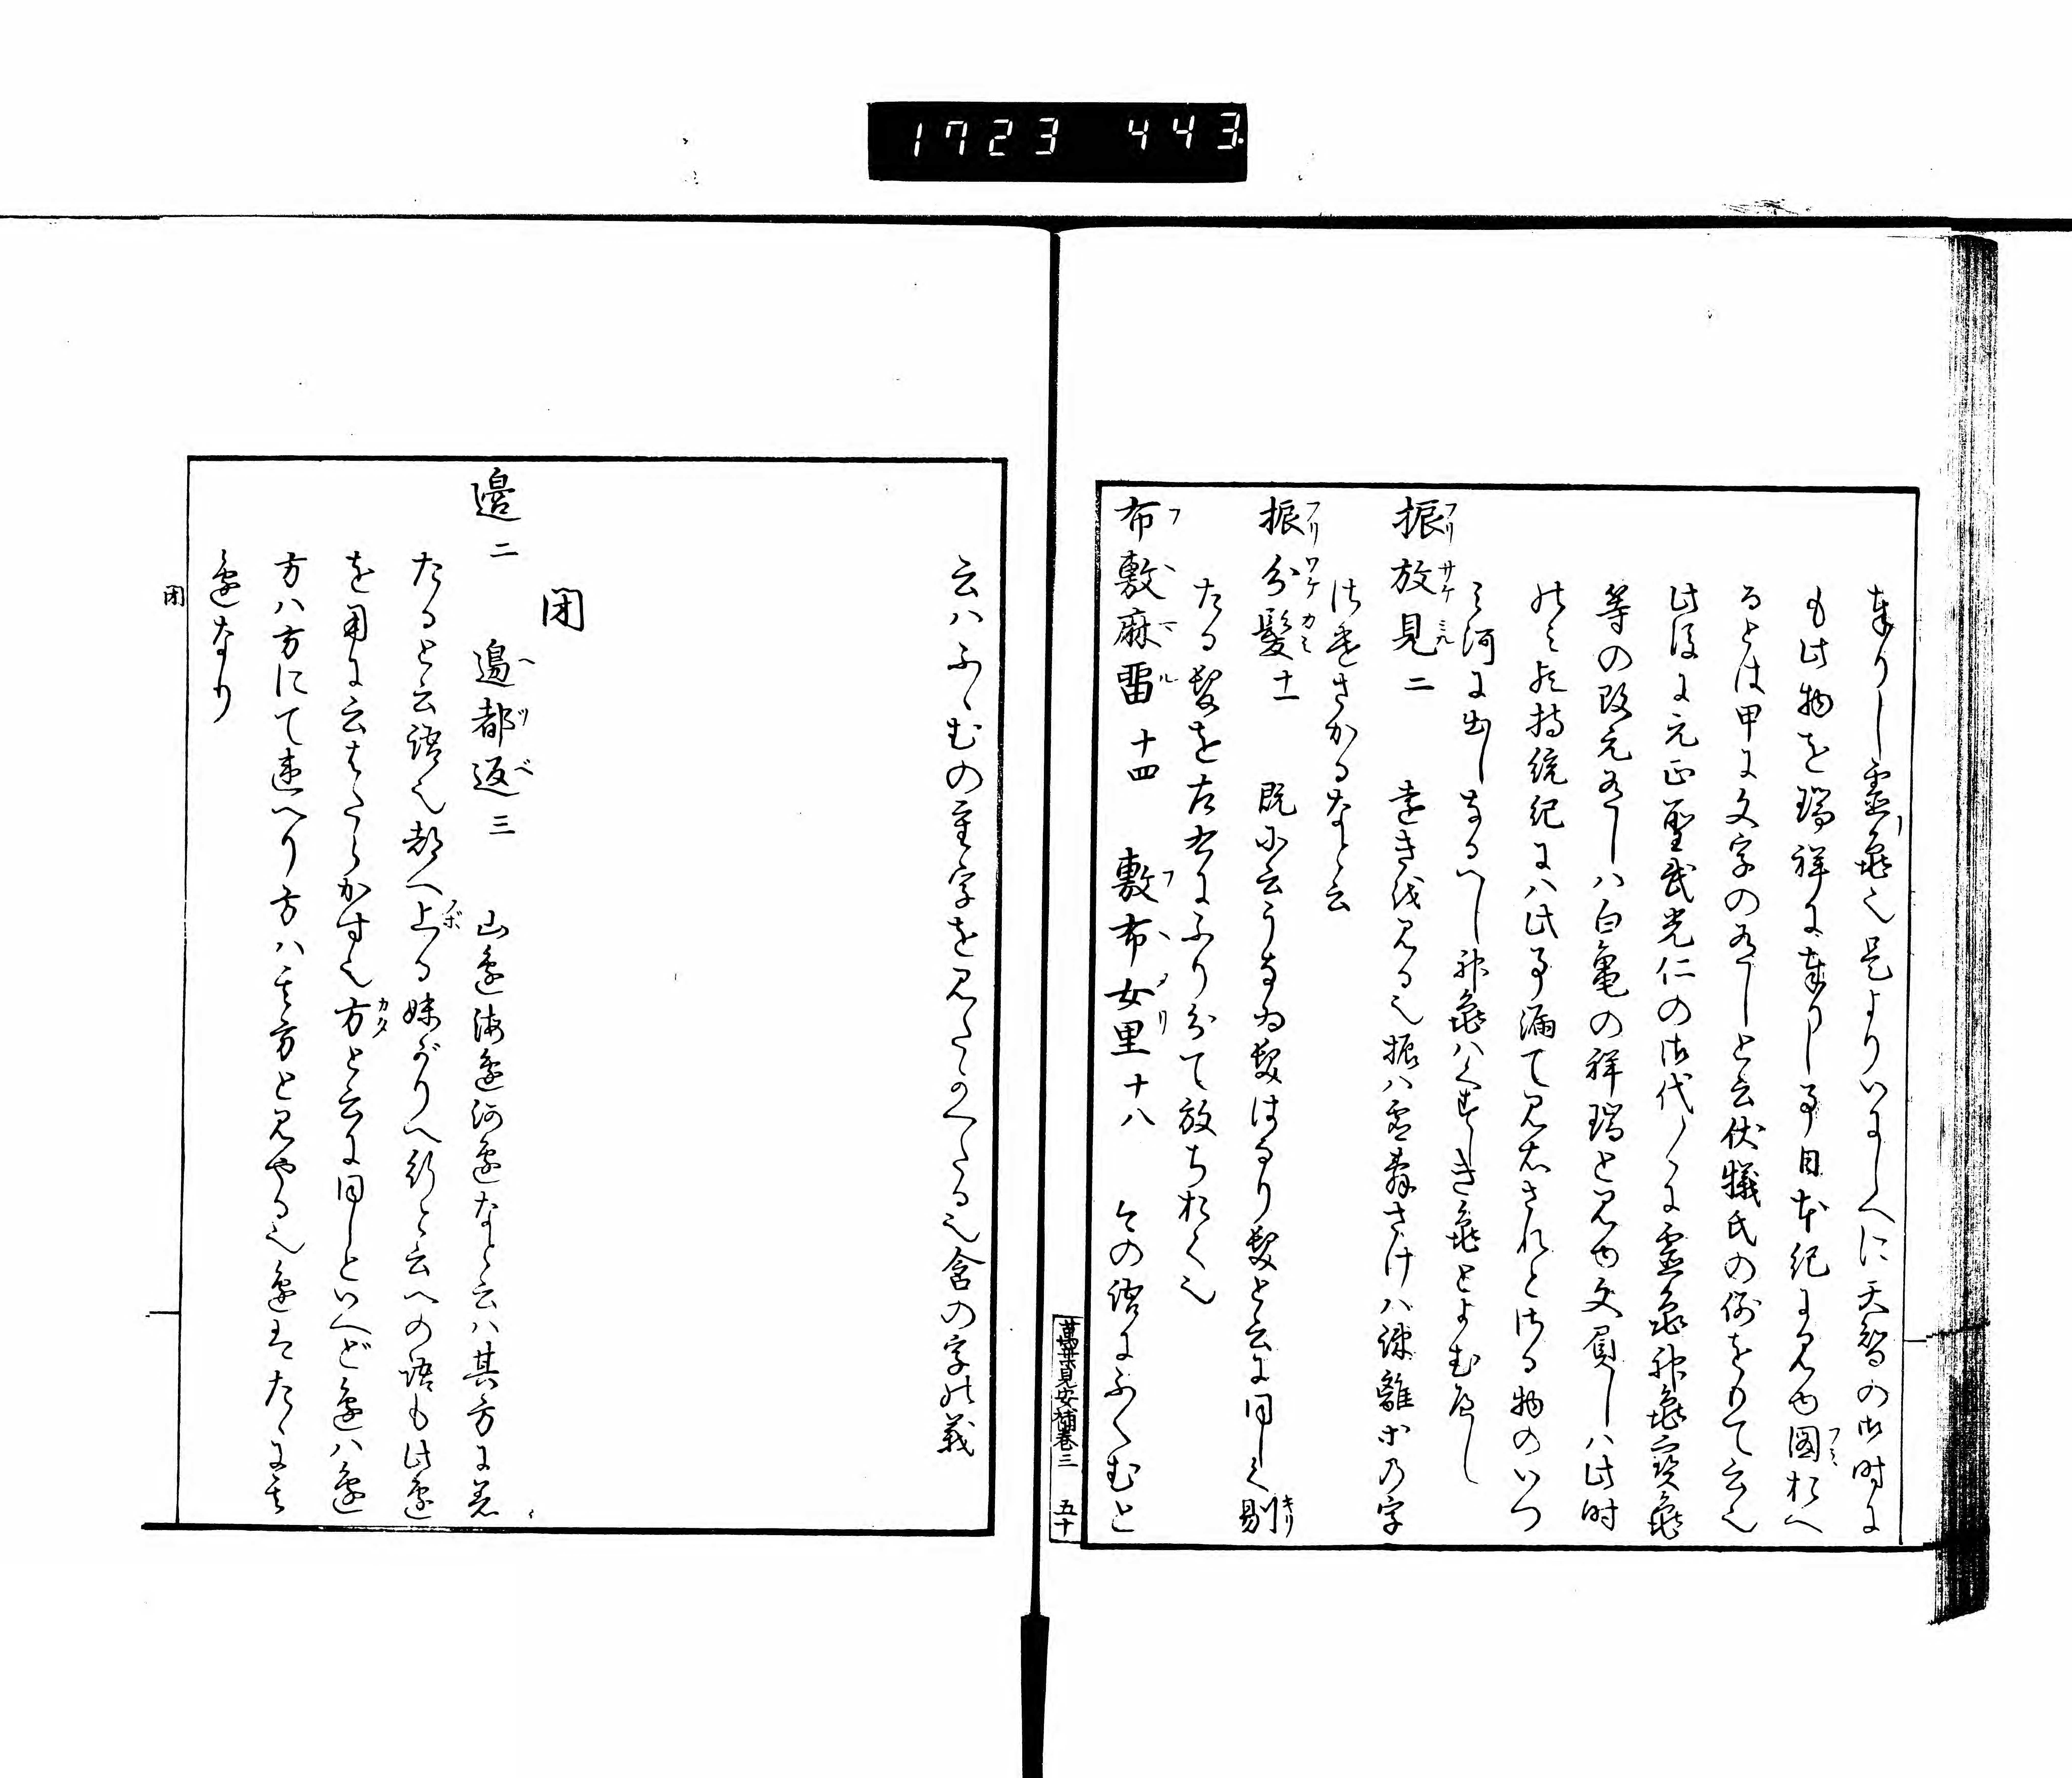 1723 443
奉りし霊亀也是よりいにしへに天智の御時に
も此物を瑞祥に奉りし事日本紀に見ゆ図おへ
るとは甲に文字の有しと云伏犠氏の例をもて云也
此後に元正聖武光仁の御代〱に霊亀神亀宝亀
等の改元有しハ白亀の祥瑞と見ゆ文負しハ此時
のミ歟持統紀にハ此事漏て見えされと
ミ河に出しなるへし神亀ハくすしき亀とよむへし
振放見二 遠きを見る也振ハ
さかるなと云
振分髪十一 既に云うなゐ髪はなり髪と云に同しく剔
たる髪を左右にふり分て放ちおく也
布敷麻畱十四 敷布女里十八 今の語にふくむと
萬葉見安補巻三 五十
云ハふゝむの重字を見たかへたる也含の字の義

閉
邊二 邊都返三 山邊海邊河邊なと云ハ其方に差
たると云語也都へ上る妹がりへ行と云への語も此邊
を用に云はたらかす也方と云に同しといへど邊ハ邊
方ハ方にて違へり方ハ其方と見やる也邊はたゝに其
邊なり
閉